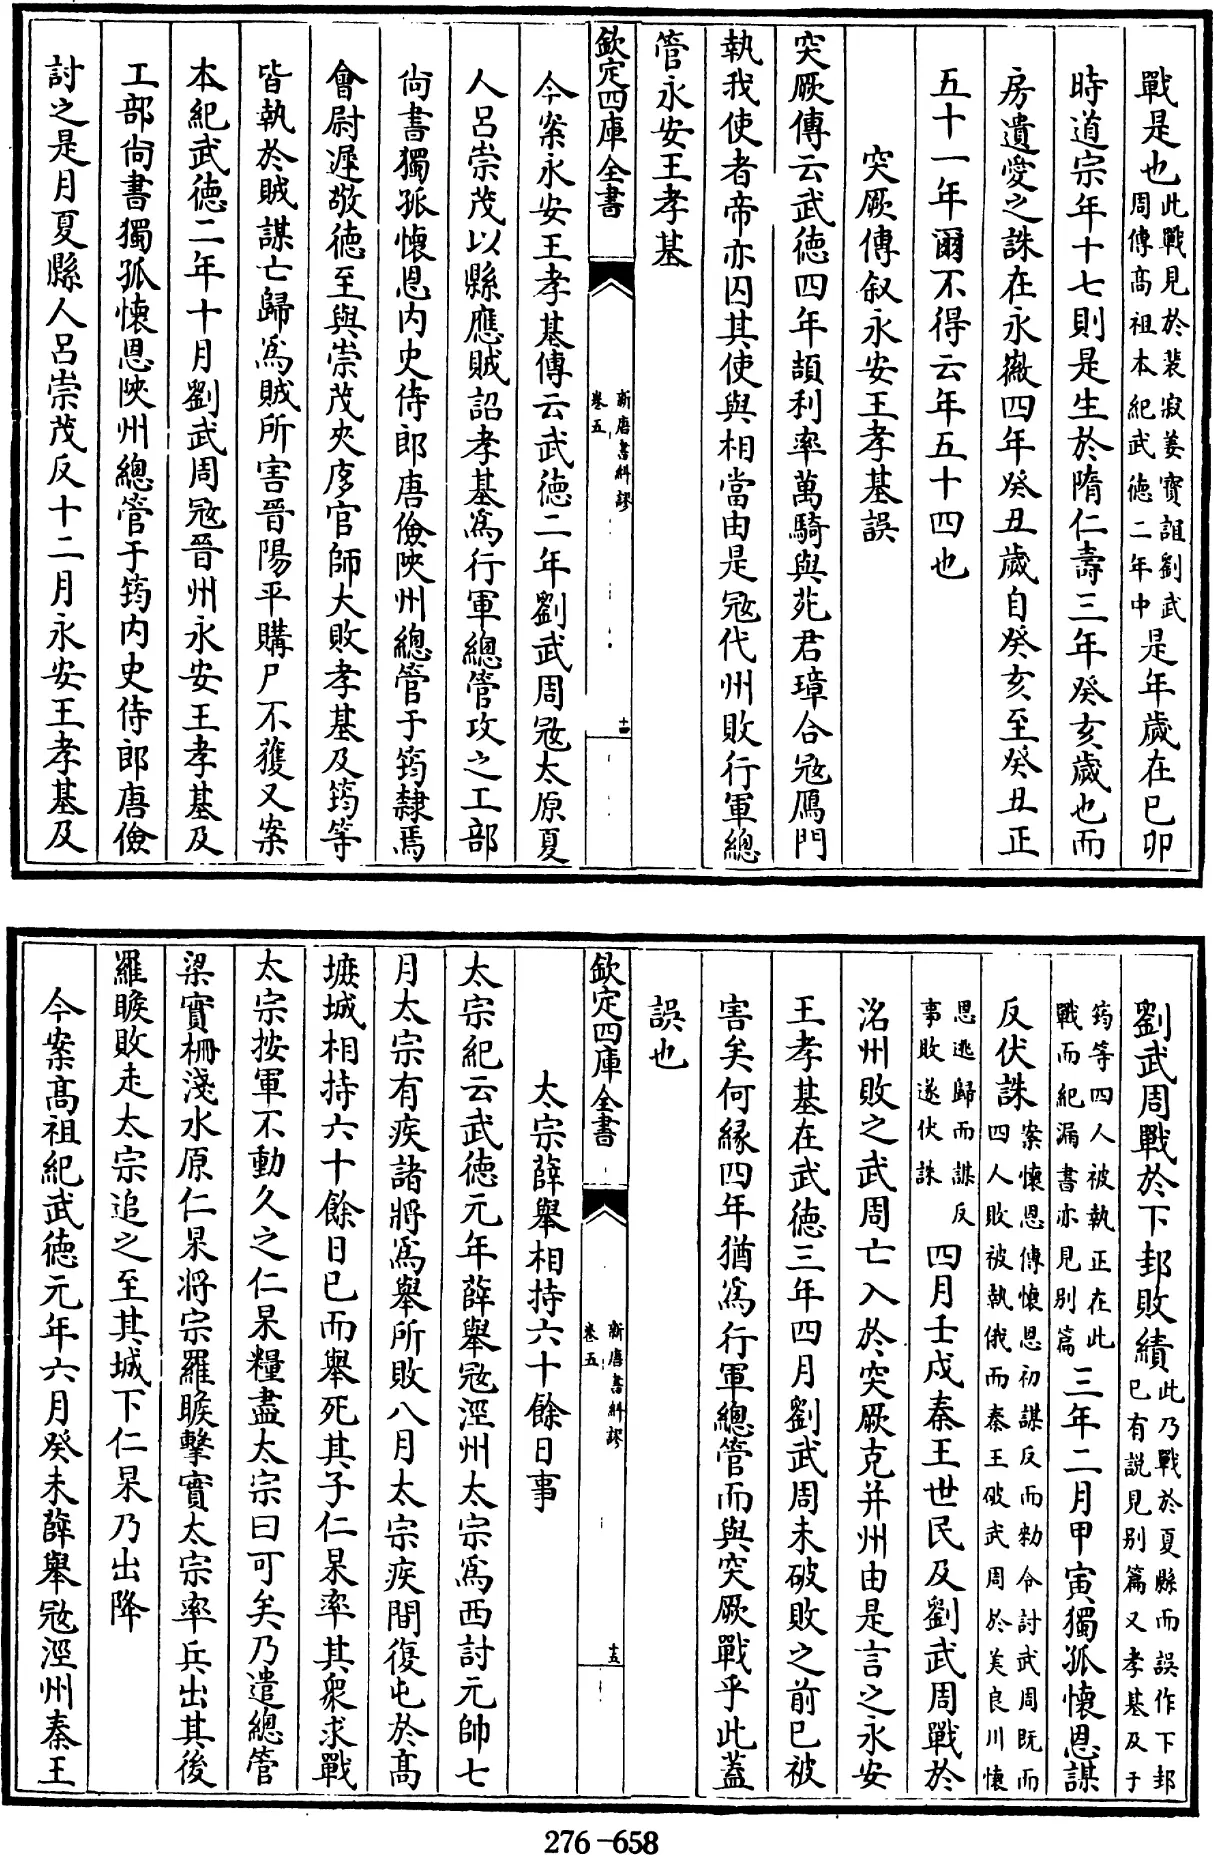 戰是也此戰見於裴寂姜寶誼劉武周傳高祖本紀武徳二年中是年歲在已卯
時道宗年十七則是生於隋仁壽三年癸亥歲也而
房遺愛之誅在永徽四年癸丑歲自癸亥至癸丑正
五十一年爾不得云年五十四也
突厥傳叙永安王孝基誤
突厥傳云武徳四年頡利率萬騎與苑君璋合宼鴈門
執我使者帝亦囚其使與相當由是宼代州敗行軍總
管永安王孝基
欽定四庫全書
新唐書糾謬
卷五
十四
今案永安王孝基傳云武徳二年劉武周宼太原夏
人呂崇茂以縣應賊詔孝基為行軍總管攻之工部
尚書獨孤懐恩内史侍郎唐儉陜州總管于筠隸焉
會尉遲敬徳至與崇茂夾㢈官師大敗孝基及筠等
皆執於賊謀亡歸為賊所害晉陽平購尸不獲又案
本紀武徳二年十月劉武周宼晉州永安王孝基及
工部尚書獨孤懐恩陜州總管于筠内史侍郎唐儉
討之是月夏縣人呂崇茂反十二月永安王孝基及
劉武周戰於下邽敗績此乃戰於夏縣而誤作下邽已有説見别篇又孝基及于
筠等四人被執正在此戰而紀漏書亦見别篇三年二月甲寅獨孤懐恩謀
反伏誅案懐恩傳懐恩初謀反而勅令討武周既而四人敗被執俄而秦王破武周於美良川懐
恩逃歸而謀反事敗遂伏誅四月壬戌秦王世民及劉武周戰於
洺州敗之武周亡入於突厥克并州由是言之永安
王孝基在武徳三年四月劉武周未破敗之前已被
害矣何縁四年猶為行軍總管而與突厥戰乎此蓋
誤也
欽定四庫全書
新唐書糾謬
卷五
十五
太宗薛舉相持六十餘日事
太宗紀云武徳元年薛舉宼涇州太宗為西討元帥七
月太宗有疾諸將為舉所敗八月太宗疾間復屯於髙
墌城相持六十餘日已而舉死其子仁杲率其衆求戰
太宗按軍不動久之仁杲糧盡太宗曰可矣乃遣總管
梁實栅淺水原仁杲將宗羅睺擊實太宗率兵出其後
羅睺敗走太宗追之至其城下仁杲乃出降
今案髙祖紀武徳元年六月癸未薛舉宼涇州秦王
276-658